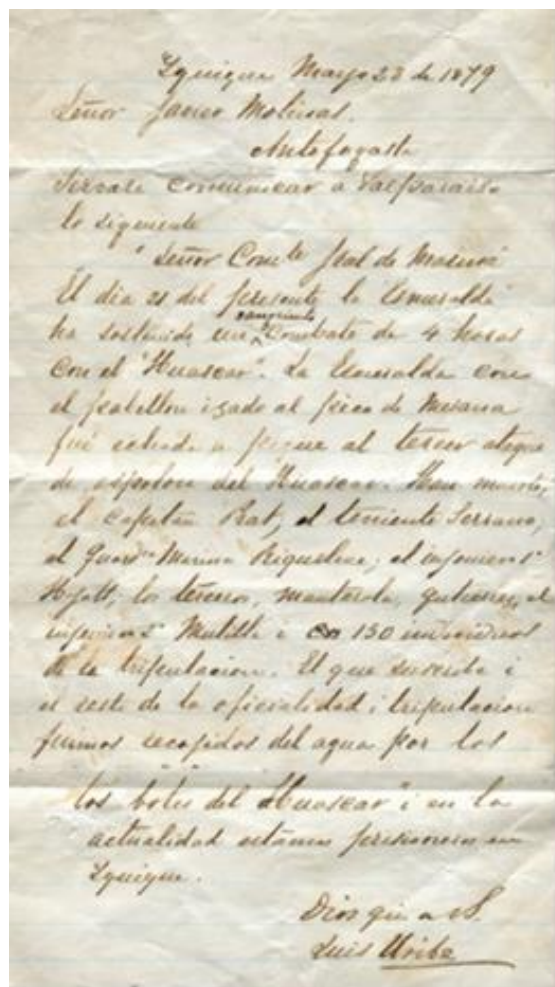 Iquique Mayo 23 de 1879
Señor Javier Molinas.
Antofagasta
Sirvase comunicar a Valparaiso
lo siguiente
"Señor Comte Jral de Marina
El dia 21 del presente la "Esmeralda"
ha sostenido un sangriento combate de 4 horas
con el "Huascar". La Esmeralda con
el pabellon izado al pico de mesana
fué echada a pique al tercer ataque
de espolon del Huascar. Han muerto,
el capitan Prat, el teniente Serrano,
el Guardia Marina Riquelme, el injeniero 1º
Hyatt, los terceros, Manterola, Gutierrez, el
injeniero 2º Mutilla i 150 individuos
de la tripulacion. El que suscribe i
el resto de la oficialidad i tripulacion
fuimos recojidos del agua por los
los botes del "Huascar" i en la
actualidad estamos prisioneros en
Iquique.
Dios gue a U.
Luis Uribe